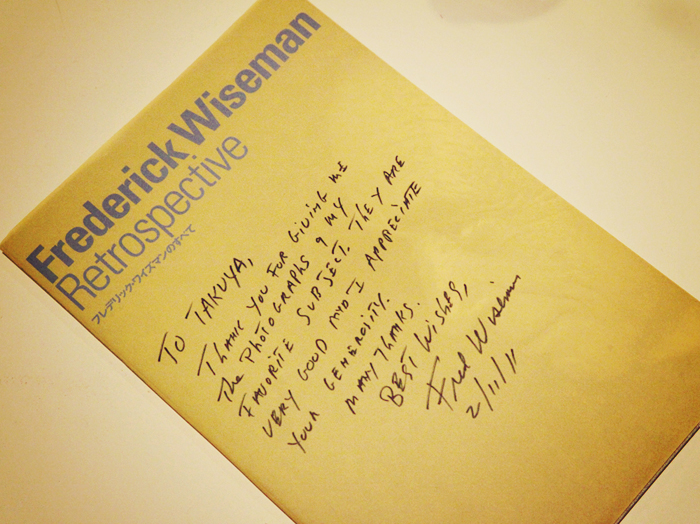 Frederick Wiseman
Retrospective
フレデリック・ワイズマンのすべて
TO TAKUYA,
THANK YOU FOR GIVING ME
THE PHOTOGRAPHS OF MY
FAVORITE SUBJECT. THEY ARE
VERY GOOD AND I APPRECIATE
YOUR GENEROSITY.
MANY THANKS.
BEST WISHES,
Fred Wiseman
2/11/11